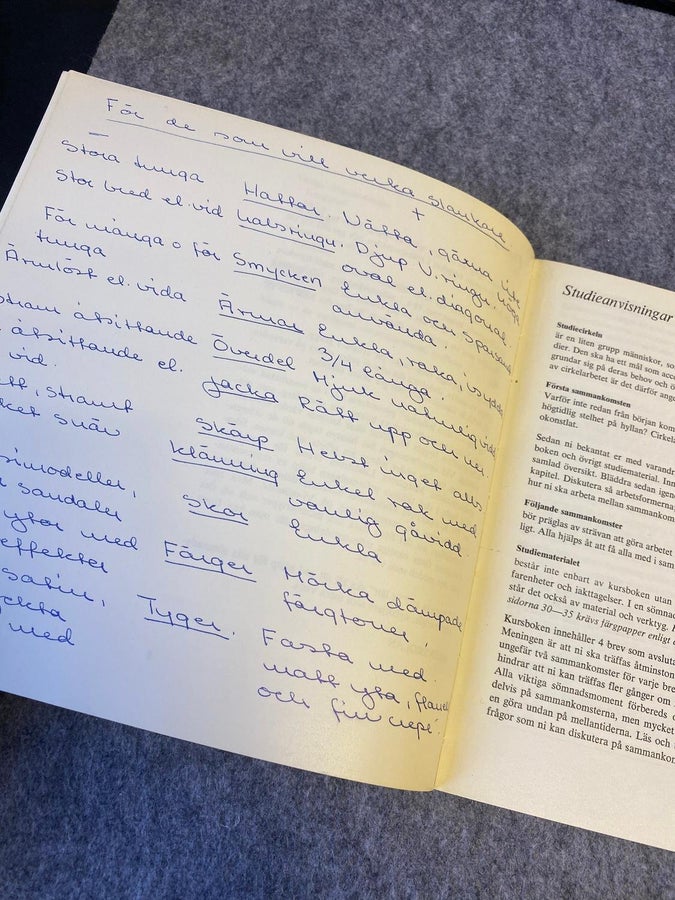 För de som vill verka slankare
+
Stora tunga Hattar. Nätta, gärna
Stor bred el. vid halsringn. Djup U.ringn.
oval el. diagonal.
För många o för tunga Smycken Enkla och sparsamt
använda.
Ärmlöst el. vida Ärmar Enkla, raka,
3/4 långa.
åtsittande Överdel Mjuk naturlig vidd
åtsittande el. vid. Jacka Rätt upp och ner
stramt Skärp Helst inget alls
snäv klänning Enkel rak med
vanlig gåvidd.
sandaler Skor Enkla
med Färger Mörka dämpade
effekter färgtoner.
satin, Tyger. Fasta med
med matt yta, flanell
och fin crepé.
Studieanvisningar
Studiecirkeln
är en liten grupp människor, so
dier. Den ska ha ett mål som acc
grundar sig på deras behov och ö
av cirkelarbetet är det därför ange
Första sammankomsten
Varför inte redan från början kom
högtidlig stelhet på hyllan? Cirkela
okonstlat.
Sedan ni bekantat er med varandr
boken och övrigt studiematerial. Inn
samlad översikt. Bläddra sedan igen
kapitel. Diskutera så arbetsformerna
hur ni ska arbeta mellan sammankom
Följande sammankomster
bör präglas av strävan att göra arbetet
ligt. Alla hjälps åt att få alla med i sam
Studiematerialet
består inte enbart av kursboken utan
farenheter och iakttagelser. I en sömnad
står det också av material och verktyg. F
sidorna 30—35 krävs färgpapper enligt
Kursboken innehåller 4 brev som avsluta
Meningen är att ni ska träffas åtminston
ungefär två sammankomster för varje bre
hindrar att ni kan träffas fler gånger om
Alla viktiga sömnadsmoment förbereds o
delvis på sammankomsterna, men mycket
en göra undan på mellantiderna. Läs och
frågor som ni kan diskutera på sammankom